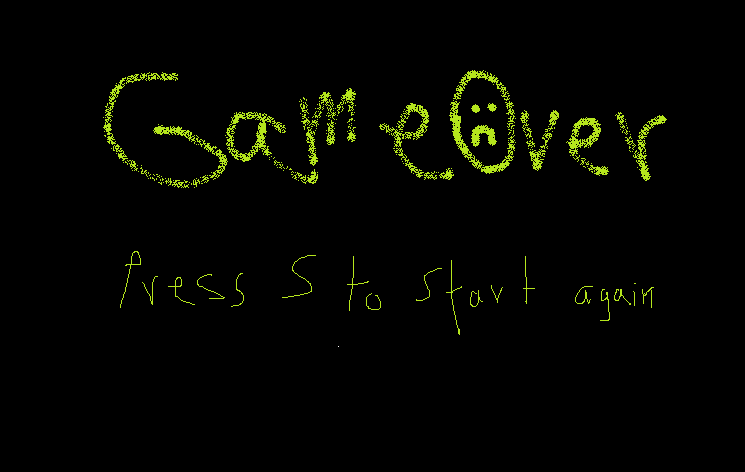 Game Over
Press S to start again